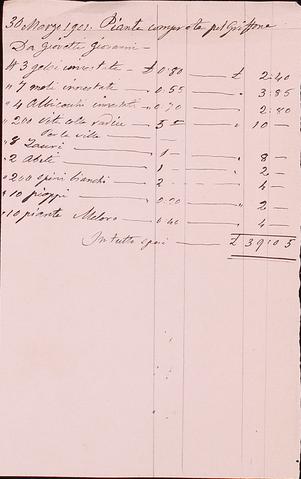 30 Marzo 1901. Piante comprate pel Griffone
Da Giovetti Giovanni —
N 3 gelsi innestate — £ 0.80 — £ 2.40
" 7 meli innestate — " 0.55 — " 3.85
" 4 Albicocchi innestati — " 0.70 — " 2.80
" 200 viti — 5 — " 10 —
Per le ville —
" 8 Lauri — 1 — " 8 —
" 2 Abeti — 1 — " 2 —
" 200 spini bianchi — 2 — " 4 —
" 10 pioppi — 0.20 — " 2 —
" 10 piante — 0.40 — " 4 —
In tutto — £ 39.05